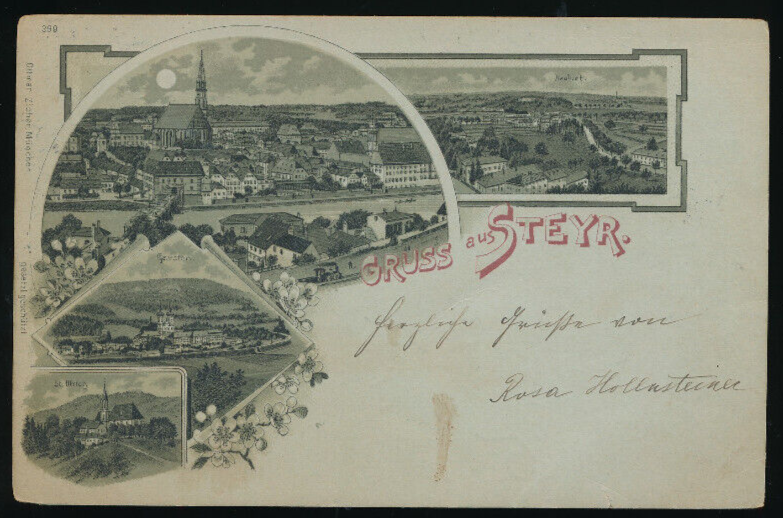 390
Neulust.
GRUSS aus STEYR.
Garsten
St. Ulrich
Herzliche Grüße von
Rosa Hollnsteiner
Ottmar Zieher München
gesetzl. geschützt